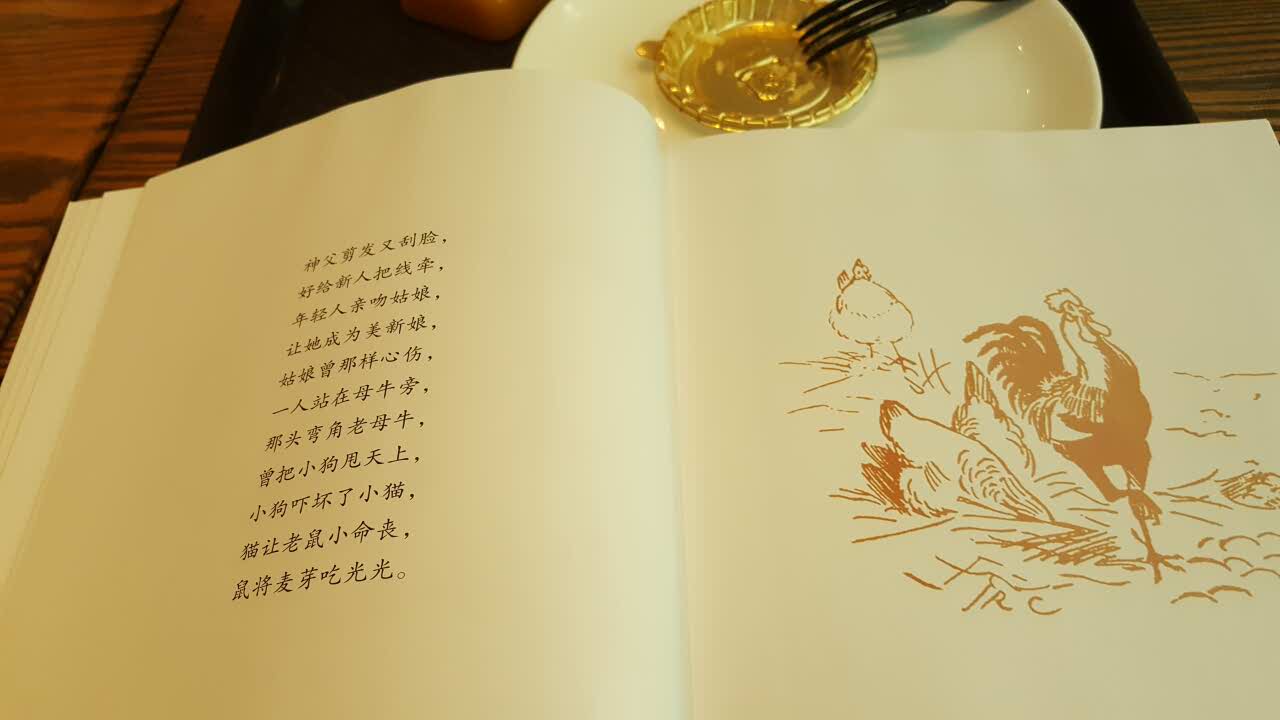 神父剪发又刮脸，
好给新人把线牵，
年轻人亲吻姑娘，
让她成为美新娘，
姑娘曾那样心伤，
一人站在母牛旁，
那头弯角老母牛，
曾把小狗甩天上，
小狗吓坏了小猫，
猫让老鼠小命丧，
鼠将麦芽吃光光。
JRC